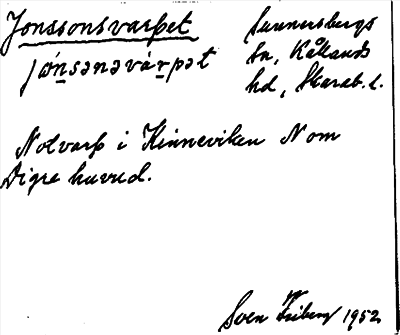 Jonssonsvarpet
jònsǝnǝvárpǝt
Sunnersbergs
sn, Kållands
hd, Skarab. l.
Notvarp i Kinneviken N om
Digre huvud.
Sven Friberg 1952